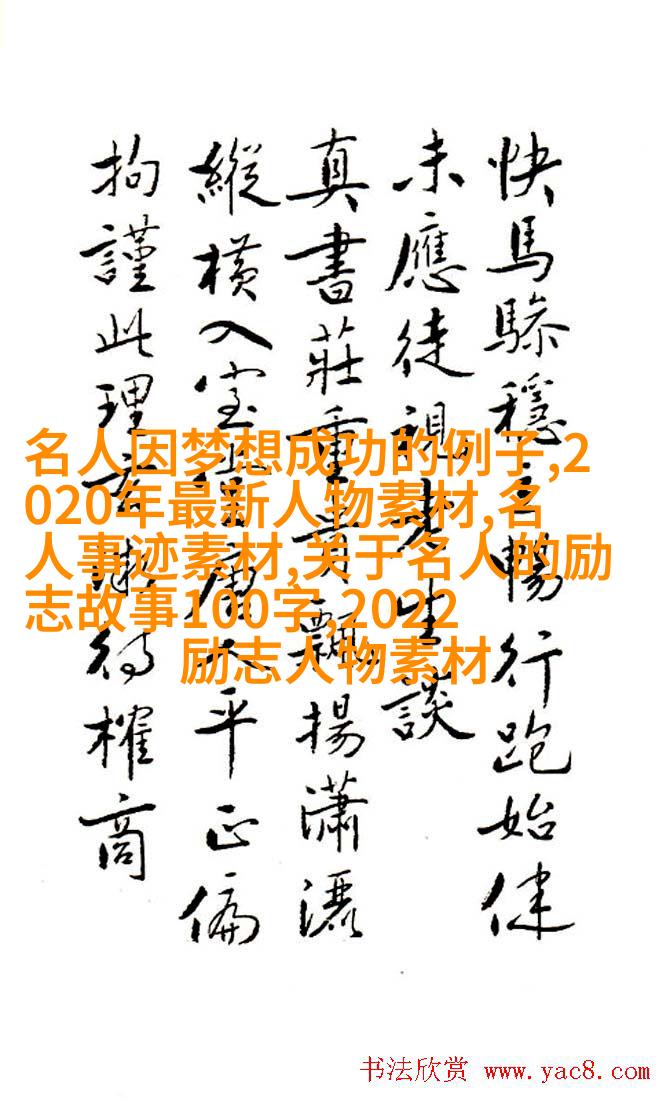 快馬穩暢行跑始健
未應徒視老生談
真書莊重貴飄揚瀟灑
縱橫入室平正偏
拘謹此理微待榷商
名人因梦想成功的例子,2
020年最新人物素材,名
人事迹素材,关于名人的励
志故事100字,2022
励志人物素材
书法欣赏 www.yac8.com